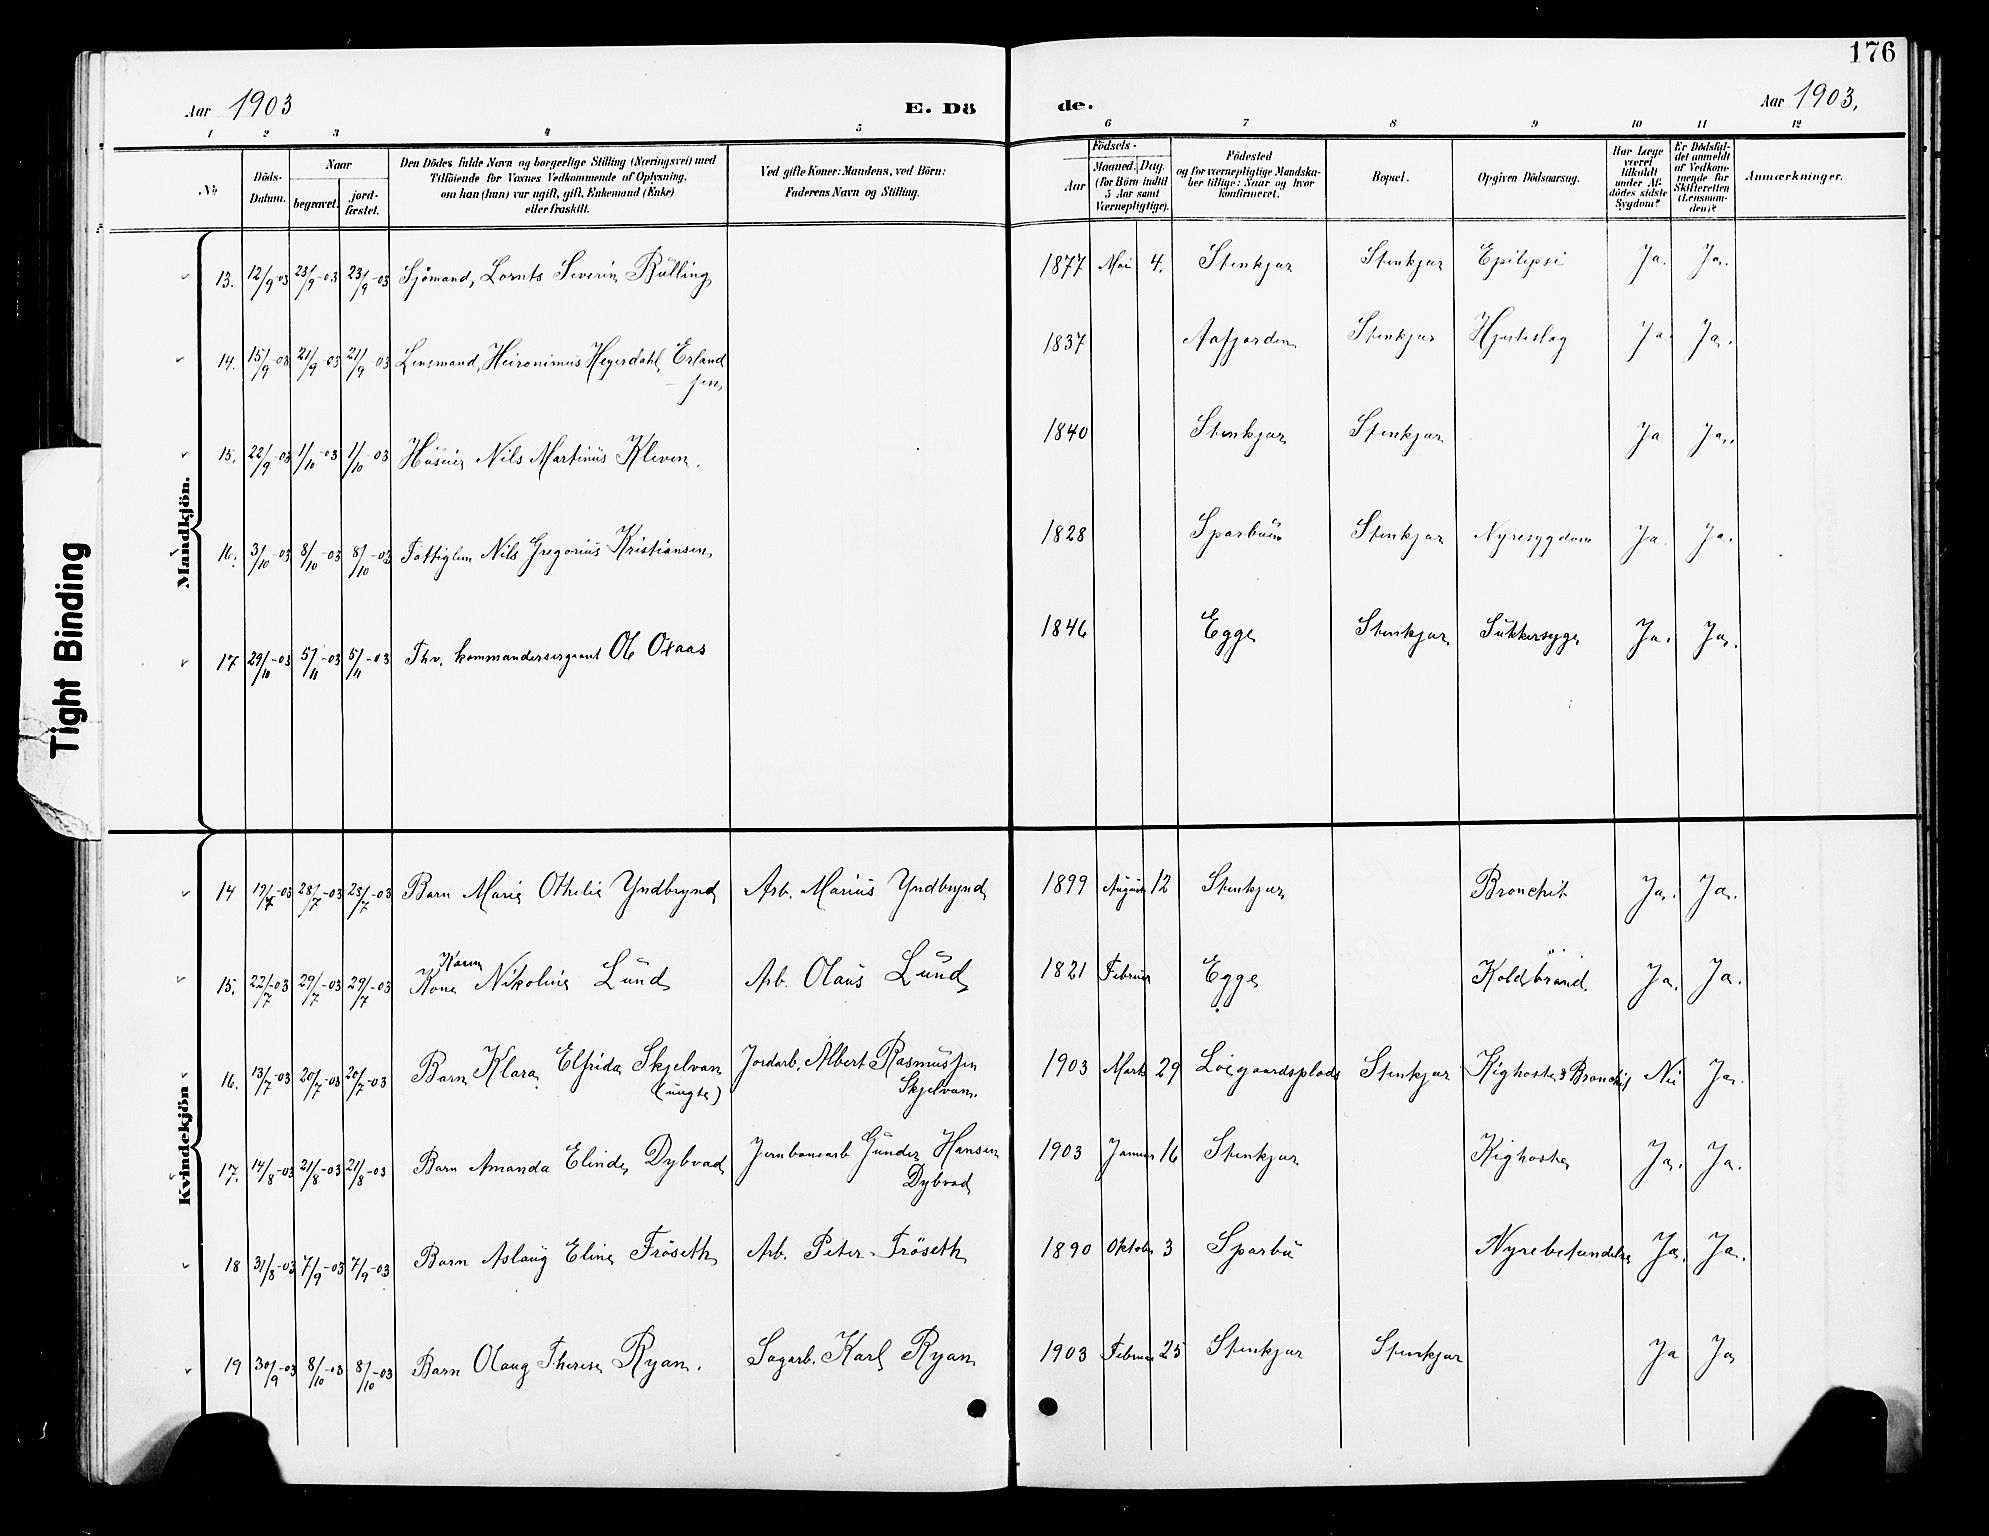 176
Aar 1903 E. Dö de. Aar 1903.
1 2 3 4 5 6 7 8 9 10 11 12
No. Döds-Datum. Naar begravet. jord-fæstet. Den Dödes fulde Navn og borgerlige Stilling (Næringsvei) med Tilföiende for Voxnes Vedkommende af Oplysning, om han (hun) var ugift, gift, Enkemand (Enke) eller fraskilt. Ved gifte Koner: Mandens, ved Börn: Faderens Navn og Stilling. Födsels- Aar Maaned. Dag. (for Börn indtil 5 Aar samt Værnepligtige). Födested og for værnepligtige Mandskaber tillige: Naar og hvor konfirmeret. Bopæl. Opgiven Dödsaarsag. Har Læge været tilkaldt under Afdödes sidste Sygdom? Er Dödsfaldet anmeldt af Vedkommende for Skifteretten (Lensmanden)? Anmærkninger.
Mandkjön.
13. 12/9-03 23/9-03 23/9-03 Sjömand, Lornts Severin Bülling 1877 Mai 4. Stenkjær Stenkjær Epilepsi Ja. Ja.
14. 15/9-03 21/9-03 21/9-03 Lensmand, Heironimus Heyerdahl Erland 1837 Aafjorden Stenkjær Hjerteslag Ja. Ja.
sen
15. 22/9-03 1/10-03 1/10-03 Huseier Nils Martinus Kleven. 1840 Stenkjær Stenkjær Ja Ja.
16. 3/10-03 8/10-03 8/10-03 Fattiglem Nils Gregorius Kristiansen 1828 Sparbuen Stenkjær Nyresygdom Ja. Ja.
17 29/10-03 5/11-03 5/11-03 Fhv. kommandersergeant Ole Oxaas 1846 Egge Stenkjær Sukkersyge Ja. Ja.
Kvindekjön
14 19/7-03 28/7-03 28/7-03 Barn Marie Othilie Yndbrynd Arb. Marius Yndbrynd 1899 August 12 Stenkjær Bronchit Ja. Ja.
Karen
15. 22/7-03 29/7-03 29/7-03 Kone Nikoline Lund Arb. Olaus Lund 1821 Februar Egge Koldbrand Ja. Ja.
16. 13/7-03 20/7-03 20/7-03 Barn Klara Elfrida Skjelvan Jordarb. Albert Rasmussen 1903 Marts 29 Løegaardsplads Stenkjær Kighoste & Bronchit Nei Ja.
(uægte) Skjelvan.
17. 14/8-03 21/8-03 21/8-03 Barn Amanda Elinde Dybvad Jernbanearb Gunder Hansen 1903 Januar 16 Stenkjær Kighoste Ja. Ja.
Dybvad
18 31/8-03 7/9-03 7/9-03 Barn Aslaug Eline Fröseth Arb. Peter Fröseth 1890 Oktober 3 Sparbu Nyrebetændelse Ja. Ja.
19 30/9-03 8/10-03 8/10-03 Barn Olaug Therese Ryan. Sagarb. Karl Ryan 1903 Februar 25 Stenkjær Stenkjær Ja Ja
Tight Binding